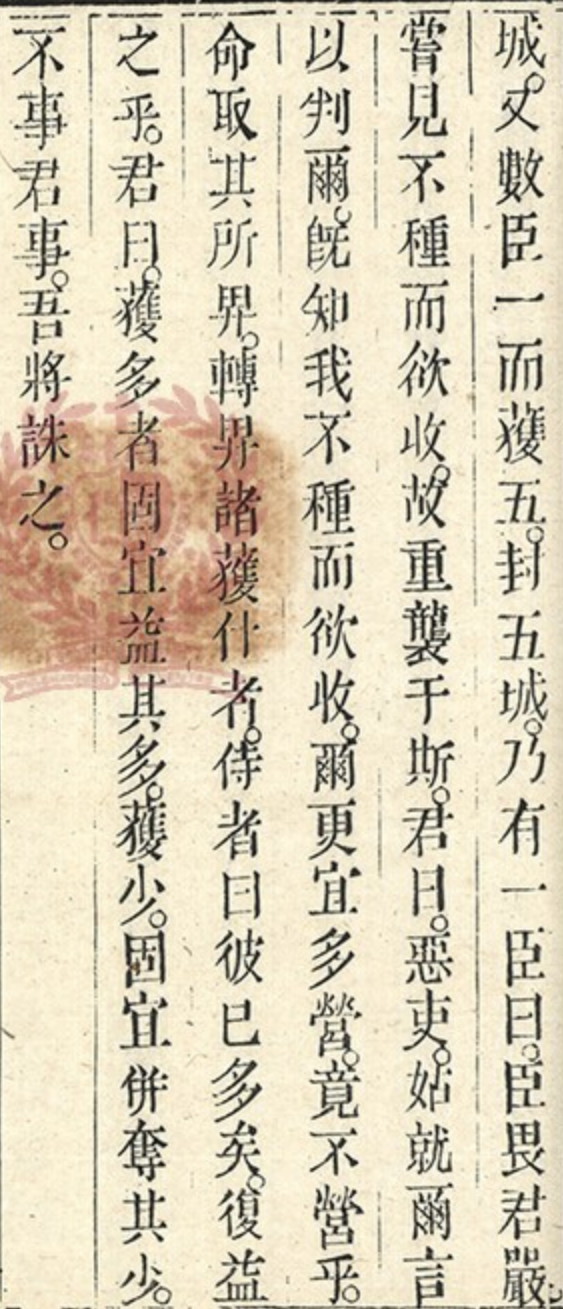 城。又數臣一而獲五。封五城。乃有一臣曰。臣畏君嚴。
嘗見不種而欲收。故重襲于斯。君曰。惡吏。姑就爾言
以判爾。旣知我不種而欲收。爾更宜多營。竟不營乎。
命取其所畀。轉畀諸獲什者。侍者曰彼已多矣。復益
之乎。君曰。獲多者固宜益其多。獲少。固宜併奪其少。
不事君事。吾將誅之。